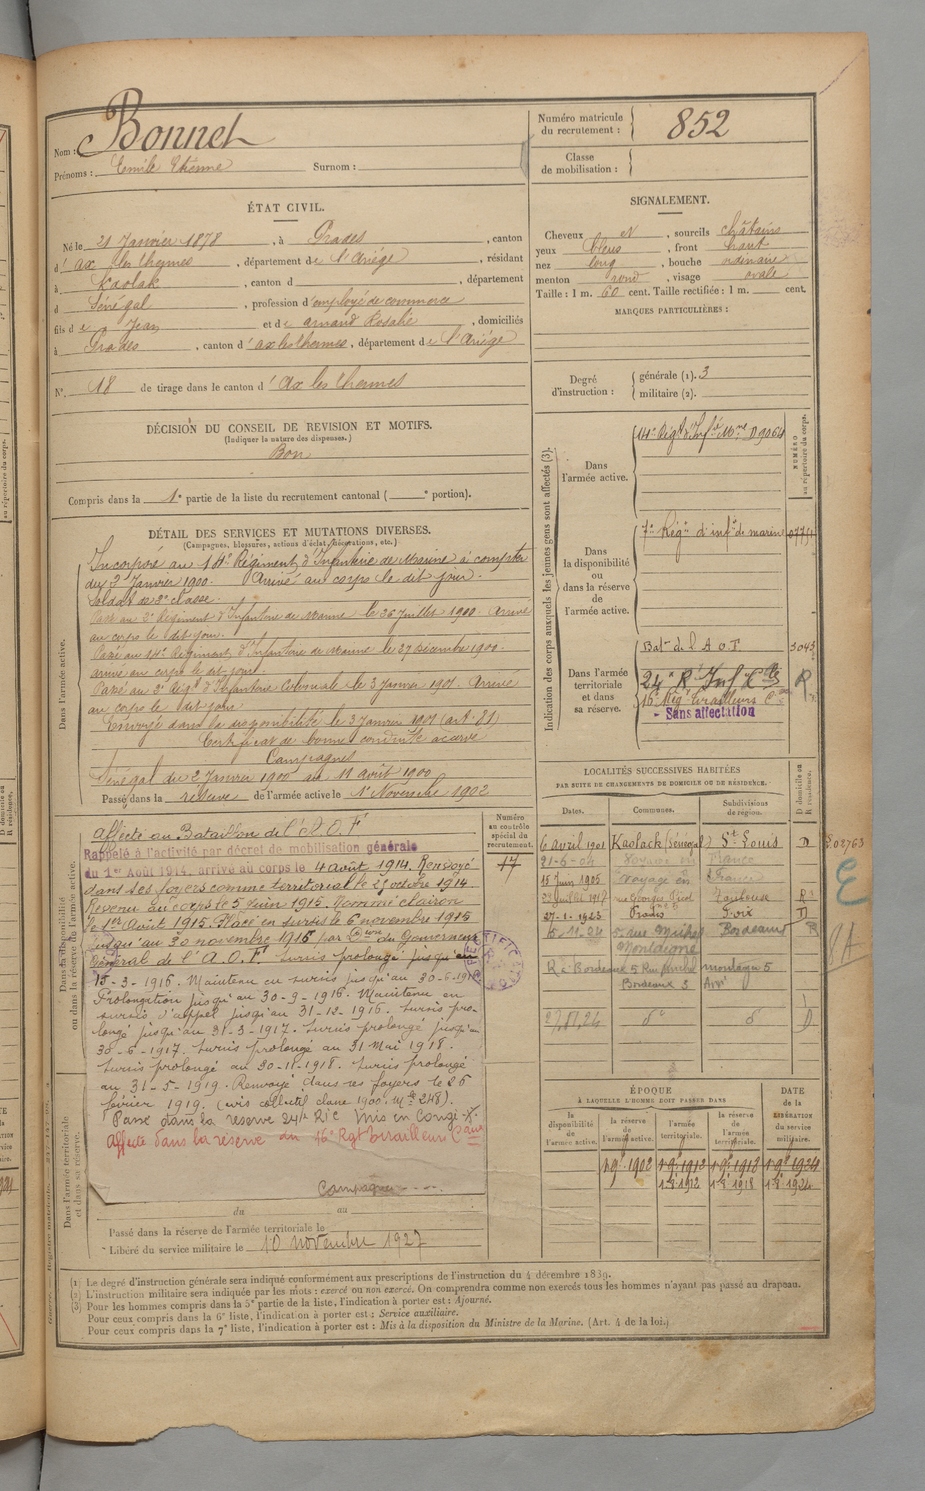 Nom : Bonnet
Prénoms : Emile Etienne Surnom :
ÉTAT CIVIL.
Né le 21 Janvier 1878, à Prades, canton
d'ax les thermes, département de l'Ariège, résidant
à Kaolak, canton d , département
d Sénégal, profession d'employé de commerce
fils de Jean et de arnaud Rosalie, domiciliés
à Prades, canton d'ax les thermes, département de l'Ariège
N°. 18 de tirage dans le canton d'Ax les thermes
DÉCISION DU CONSEIL DE REVISION ET MOTIFS.
(Indiquer la nature des dispenses.)
Bon
Compris dans la 1e partie de la liste du recrutement cantonal ( e portion).
DÉTAIL DES SERVICES ET MUTATIONS DIVERSES.
(Campagnes, blessures, actions d'éclat, décorations, etc.)
Dans l'armée active.
Incorporé au 14e Régiment d'Infanterie de Marine à compter
du 2 Janvier 1900. Arrivé au corps le dit jour.
Soldat de 2e classe.
Passé au 3e Régiment d'Infanterie de Marine le 26 Juillet 1900. Arrivé
au corps le dit jour.
Passé au 14e Régiment d'Infanterie de Marine le 27 Décembre 1900.
arrivé au corps le dit jour.
Passé au 3e Régt d'Infanterie Coloniale le 3 Janvier 1901. Arrivé
au corps le dit jour
Envoyé dans la disponibilité le 3 Janvier 1901 (art. 21)
Certificat de bonne conduite accordé
Campagnes
Sénégal du 2 Janvier 1900 au 11 août 1900
Passé dans la réserve de l'armée active le 1er Novembre 1902
Numéro
au contrôle
spécial du
recrutement.
17
Dans la disponibilité
ou dans la réserve de l'armée active.
Affecté au Bataillon de l'A.O.F
Rappelé à l'activité par décret de mobilisation générale
du 1er Août 1914, arrivé au corps le 4 août 1914. Renvoyé
dans ses foyers comme territorial le 23 octobre 1914.
Revenu au corps le 5 Juin 1915. Nommé clairon
le 1er Août 1915. Placé en sursis le 6 novembre 1915
Jusqu'au 30 novembre 1915 par Don du Gouverneur
Général de l'A.O.F. sursis prolongé jusqu'au
15-3-1916. Maintenu en sursis jusqu'au 30-6-1916
Prolongation jusqu'au 30-9-1916. Maintenu en
sursis d'appel jusqu'au 31-12-1916. sursis pro-
longé jusqu'au 31-3-1917. sursis prolongé jusqu'au
30-6-1917. sursis prolongé au 31 Mai 1918.
sursis prolongé au 30-11-1918. sursis prolongé
au 31-5-1919. Renvoyé dans ses foyers le 26
février 1919. (avis collectif classe 1900. Mle 248).
Passé dans la réserve 24e RIC
Affecté dans la réserve au 16e Rgt tirailleurs Caux
Dans l'armée territoriale
et dans sa réserve.
Campagnes
du au
Passé dans la réserve de l'armée territoriale le
Libéré du service militaire le 10 novembre 1927
Numéro matricule
du recrutement : 852
Classe
de mobilisation :
SIGNALEMENT.
Cheveux et, sourcils châtains
yeux bleus, front haut
nez long, bouche ordinaire
menton rond, visage ovale
Taille : 1 m. 60 cent. Taille rectifiée : 1 m. cent.
MARQUES PARTICULIÈRES :
Degré
d'instruction :
générale (1). 3
militaire (2).
Indication des corps auxquels les jeunes gens sont affectés (3).
NUMÉRO
au répertoire du corps.
Dans
l'armée active.
14e Régt d'Inftie Mne D 9064
Dans
la disponibilité
ou
dans la réserve
de
l'armée active.
7e Régnt d'infie de marine
Dans l'armée
territoriale
et dans
sa réserve.
Baton de l'A O F 3043
24e R Inf Cle R
16e Rég tirailleurs
- Sans affectation
LOCALITÉS SUCCESSIVES HABITÉES
PAR SUITE DE CHANGEMENTS DE DOMICILE OU DE RÉSIDENCE.
D domicile ou
R résidence.
Dates. Communes. Subdivisions
de région.
6 avril 1901 Kaolack (Sénégal) St Louis D
21-6-04 Voyage en France
15 Juin 1905 Voyage en France
Toulouse R
27-1-1923 Prades Foix D
15-11-24 5, rue Michel Bordeaux R
Montaigne
R à Bordeaux 5 Rue Michel montaigne 5
Bordeaux
do do D
ÉPOQUE
À LAQUELLE L'HOMME DOIT PASSER DANS
DATE
de la
LIBÉRATION
du service
militaire.
la
disponibilité
de
l'armée active.
la
réserve
de
l'armée active.
l'armée
territoriale.
la réserve
de
l'armée
territoriale.
1 9e 1902 1 9e 1912 1 9e 1918 1 9e 1924
1912 1918 1924
(1) Le degré d'instruction générale sera indiqué conformément aux prescriptions de l'instruction du 4 décembre 1889.
(2) L'instruction militaire sera indiquée par les mots : exercé ou non exercé. On comprendra comme non exercés tous les hommes n'ayant pas passé au drapeau.
(3) Pour les hommes compris dans la 5e partie de la liste, l'indication à porter est : Ajourné.
Pour ceux compris dans la 6e liste, l'indication à porter est : Service auxiliaire.
Pour ceux compris dans la 7e liste, l'indication à porter est : Mis à la disposition du Ministre de la Marine. (Art. 4 de la loi.)